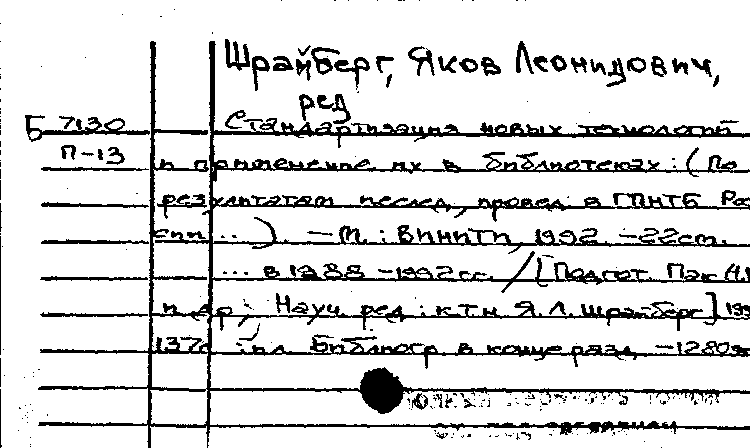 Шрайберг, Яков Леонидович,
ред
Б 7130 Стандартизация новых технологий
П-13 и применение их в библиотеках: (По
результатам исслед, провед в ГПНТБ Рос
сии ... ). — М.: ВИНИТИ, 1992. — 22 см.
... в 1988 - 1992 гг. / [Подгот. Пак
и др; Науч. ред: к.т.н. Я.Л. Шрайберг] 199
137с ил. Библиогр. в конце разд. - 1280экз